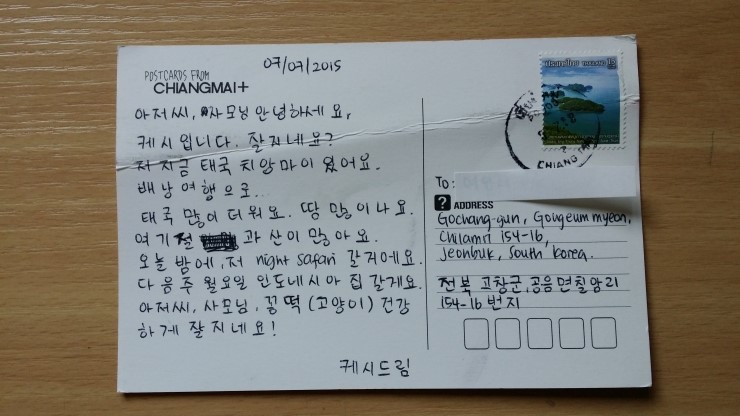 07/07/2015
POSTCARDS FROM
CHIANGMAI+
아저씨, 사모닝 안녕하세요,
케시 입니다. 잘지네요?
저 지금 태국 치앙마이 있어요.
배낭여행으로..
태국 많이 더워요. 땅 많이나요.
여기 절 과 산이 많아요.
오늘 밤에, 저 night safari 갈거에요.
다음주 월요일 인도네시아 집 갈게요.
아저씨, 사모닝, (고양이) 건강
하게 잘지네요!
케시드림
ประเทศไทย THAILAND 15
CHIANG
To:
? ADDRESS
Gochang-gun, Gongeum myeon,
Chilamri 154-16,
Jeonbuk, South Korea.
전북 고창군, 공음면칠암리
154-16 번지